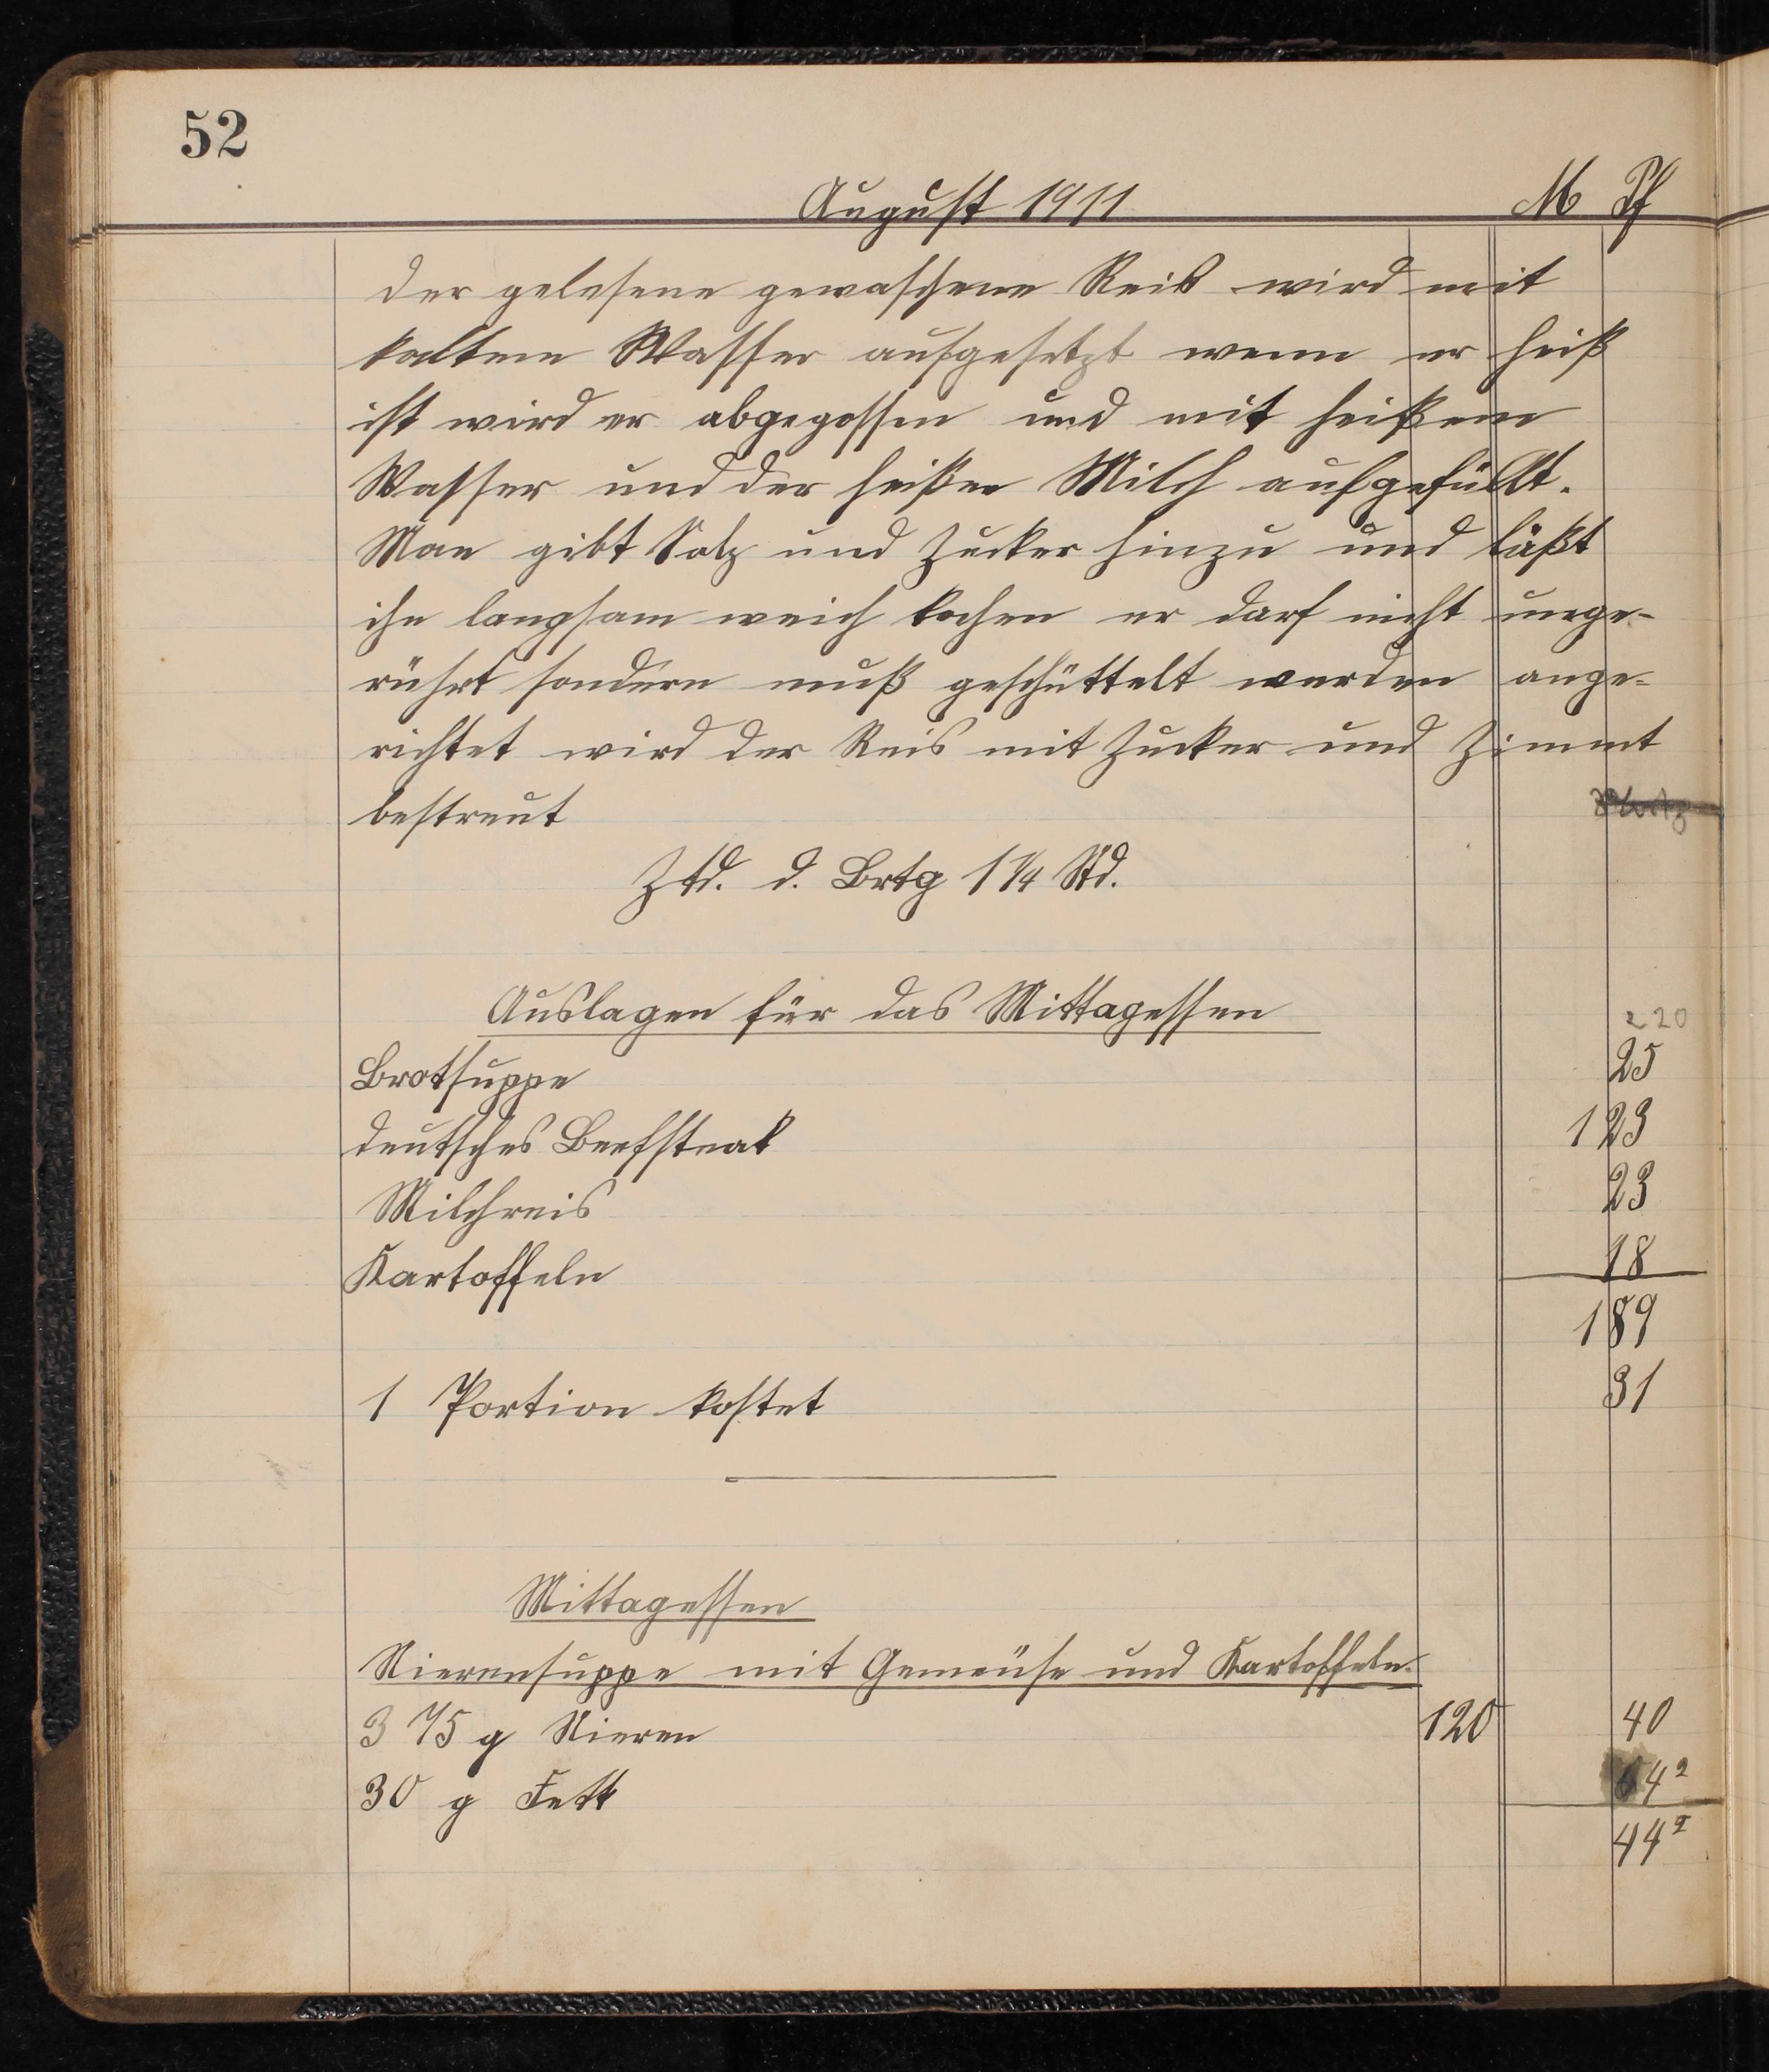 52
August 1911 M Pf
der gelesene gewaschene Reis wird mit
kaltem Wasser aufgesetzt wenn er heiß
ist wird er abgegossen und mit heißem
Wasser und der heißen Milch aufgefüllt.
Man gibt Salz und Zucker hinzu und läßt
ihn langsam weich kochen er darf nicht umge-
rührt sondern muß geschüttelt werden ange-
richtet wird der Reis mit Zucker und Zimmt
bestreut
Ztd. d. Brtg 1 1/4 Std.
Auslagen für das Mittagessen
220
Brotsuppe 25
deutsches Beefsteak 1 23
Milchreis 23
Kartoffeln 18
1 89
1 Portion kostet 31
Mittagessen
Nierensuppe mit Gemüse und Kartoffeln.
375 g Nieren 120 40
30 g Fett 4²
44²